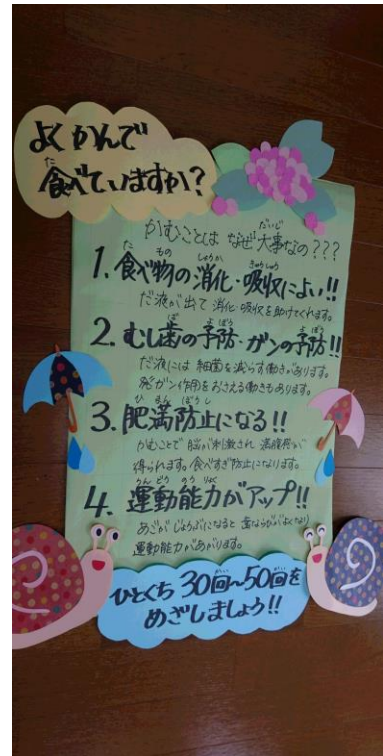 よくかんで
食べていますか?
かむことは なぜ大事なの???
1. 食べ物の消化・吸収によい!!
だ液が出て 消化・吸収を助けてくれます。
2. むし歯の予防・ガンの予防!!
だ液には 細菌を減らす働きがあります。
発ガン作用をおさえる働きもあります。
3. 肥満防止になる!!
かむことで 脳が刺激され 満腹感が
得られます。食べすぎ防止になります。
4. 運動能力がアップ!!
あごが じょうぶになると 歯ならびがよくなり
運動能力があがります。
ひとくち 30回~50回を
めざしましょう!!